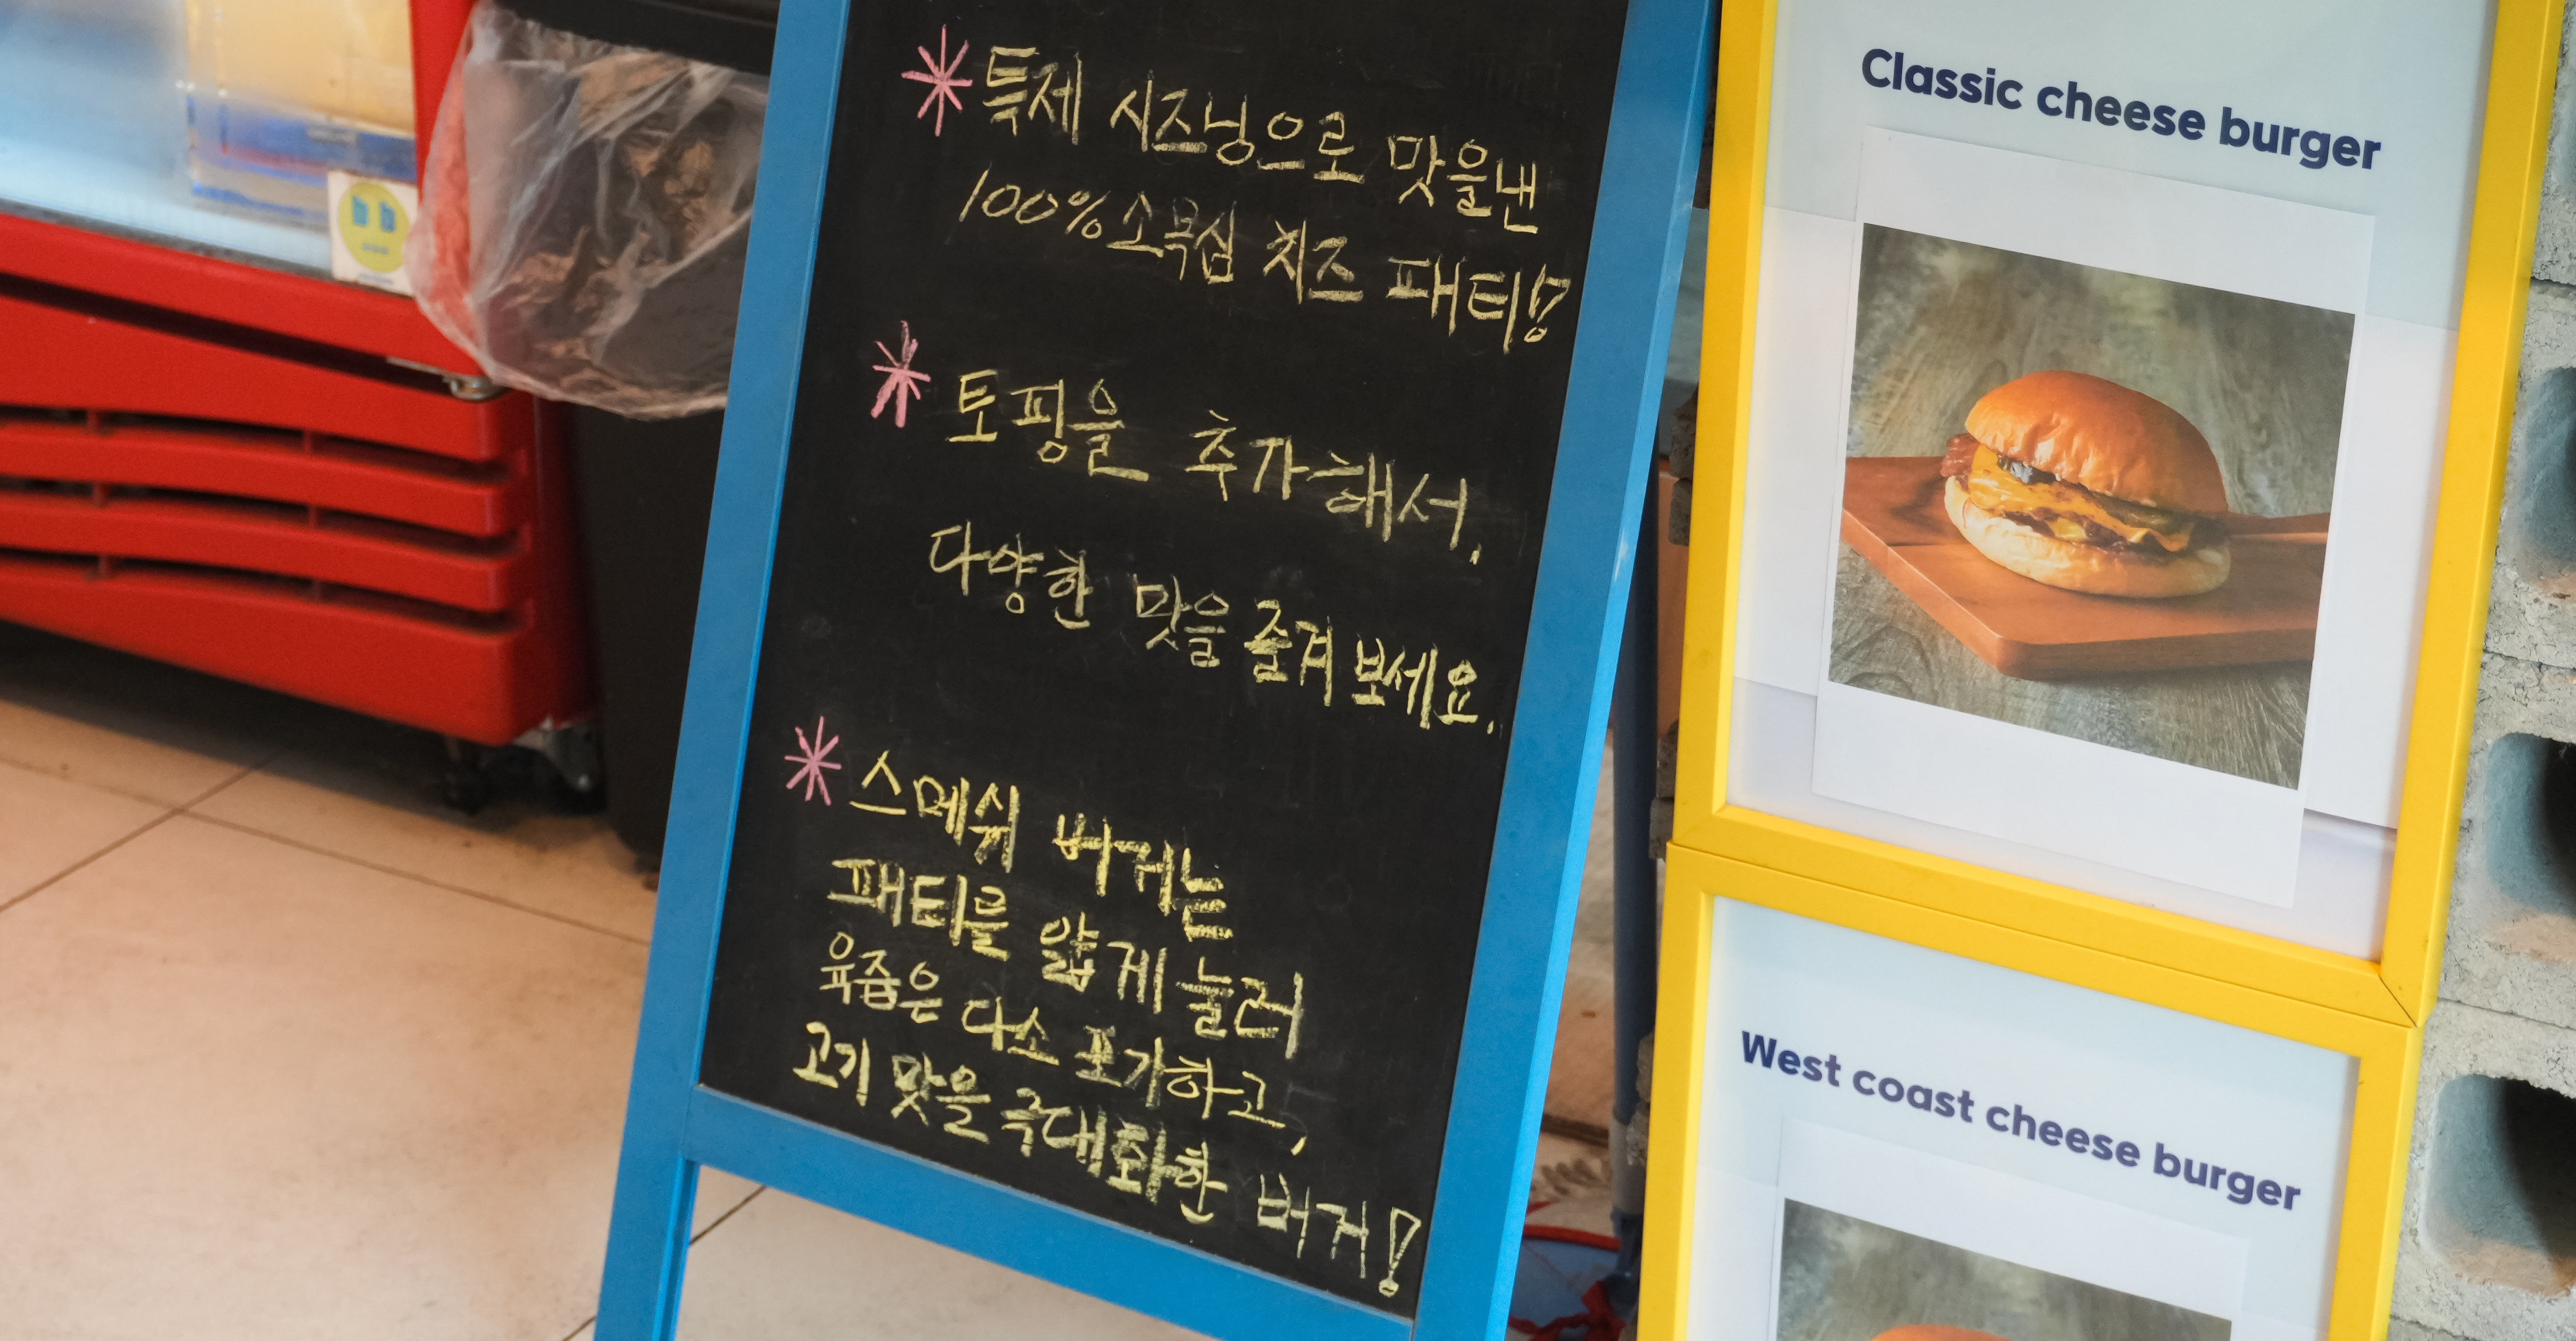 특제 시즈닝으로 맛을낸
100%소목심 치즈 패티!
토핑을 추가해서,
다양한 맛을 즐겨보세요.
스메쉬 버거는
패티를 얇게 눌러
육즙은 다소 포기하고,
고기 맛을 극대화한 버거!
Classic cheese burger
West coast cheese burger